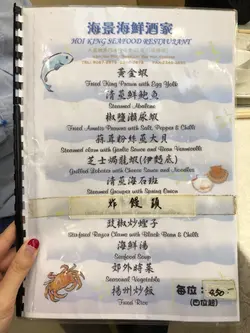 海景海鮮酒家
HOI KING SEAFOOD RESTAURANT
黃金蝦
Fried King Prawn with Egg Yolk
清蒸鮮鮑魚
Steamed Abalone
椒鹽瀨尿蝦
Fried Mantis Prawns with Salt, Pepper & Chilli
蒜茸粉絲蒸大貝
Steamed clam with Garlic Sauce and Bean Vermicelli
芝士焗龍蝦(伊麵底)
Grilled Lobster with Cheese Sauce and Noodles
清蒸海石班
Steamed Grouper with Spring Onion
炸饅頭
豉椒炒蟶子
Stir-fried Razor Clams with Black Bean & Chilli
海鮮湯
Seafood Soup
郊外時菜
Seasonal Vegetable
揚州炒飯
Fried Rice
每位：
(四位起)